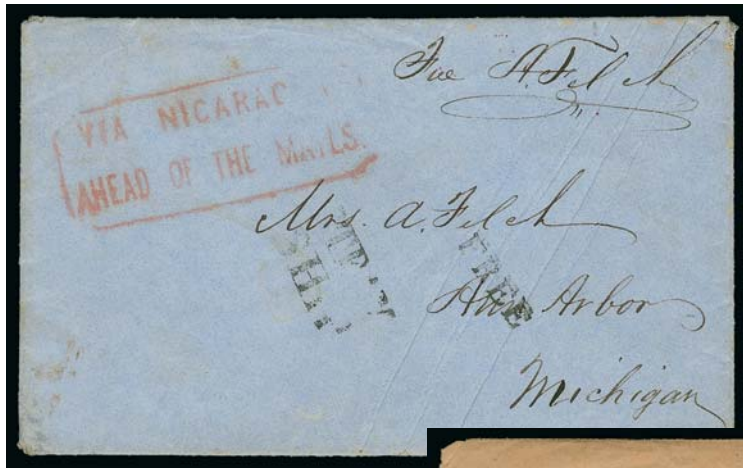 Free A. Felch
VIA NICARAG
AHEAD OF THE MAILS.
Mrs. A. Felch
SHIP
FREE
Ann Arbor
Michigan